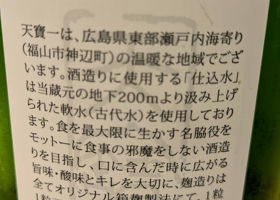 天寶一は、広島県東部瀬戸内海寄り
(福山市神辺町)の温暖な地域でござ
います。酒造りに使用する「仕込水」
は当蔵元の地下200mより汲み上げ
られた軟水(古代水)を使用しており
ます。食を最大限に生かす名脇役を
モットーに食事の邪魔をしない酒造
りを目指し、口に含んだ時に広がる
旨味・酸味とキレを大切に、麹造りは
全てオリジナル箱麹製法にて、1粒